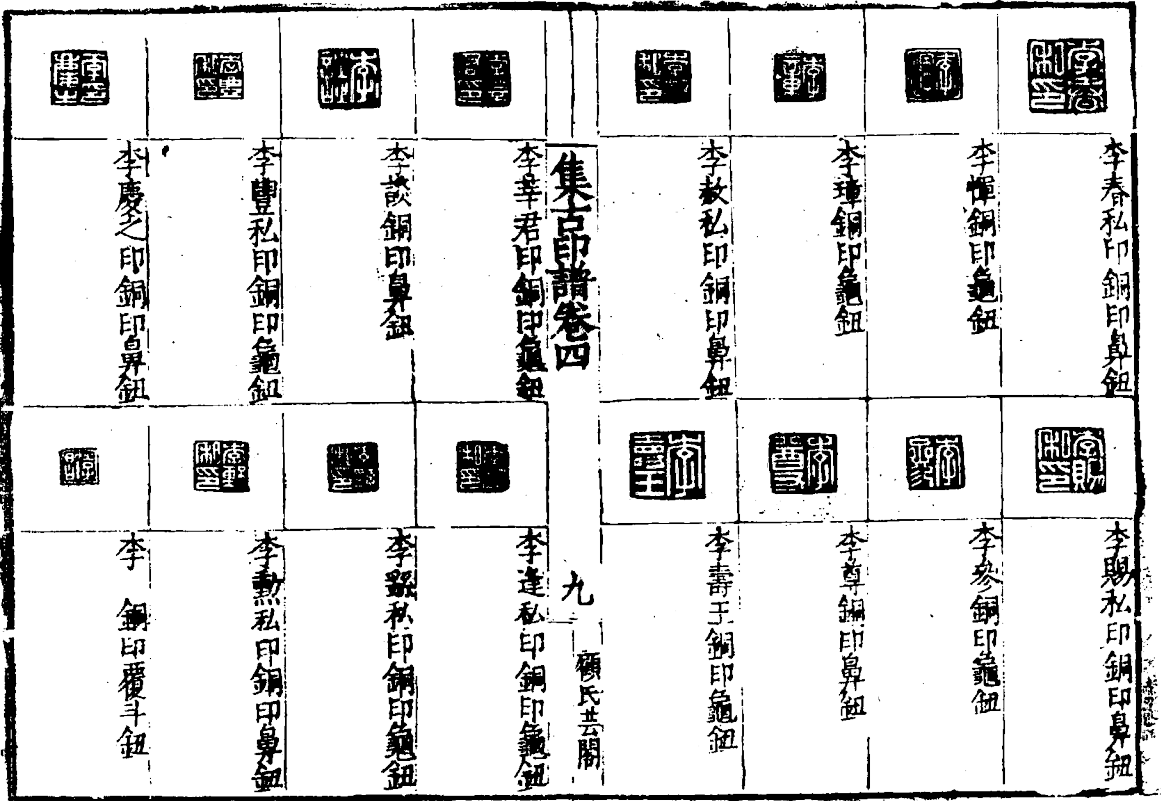 李春私印銅印鼻鈕
李惲銅印龜鈕
李璋銅印龜鈕
李赦私印銅印鼻鈕
李賜私印銅印鼻鈕
李參銅印龜鈕
李尊銅印鼻鈕
李壽王銅印龜鈕
集古印譜卷四
九
顧氏芸閣
李莘君印銅印龜鈕
李談銅印鼻鈕
李豐私印銅印龜鈕
李慶之印銅印鼻鈕
李逢私印銅印龜鈕
李私印銅印龜鈕
李勲私印銅印鼻鈕
李 銅印覆斗鈕